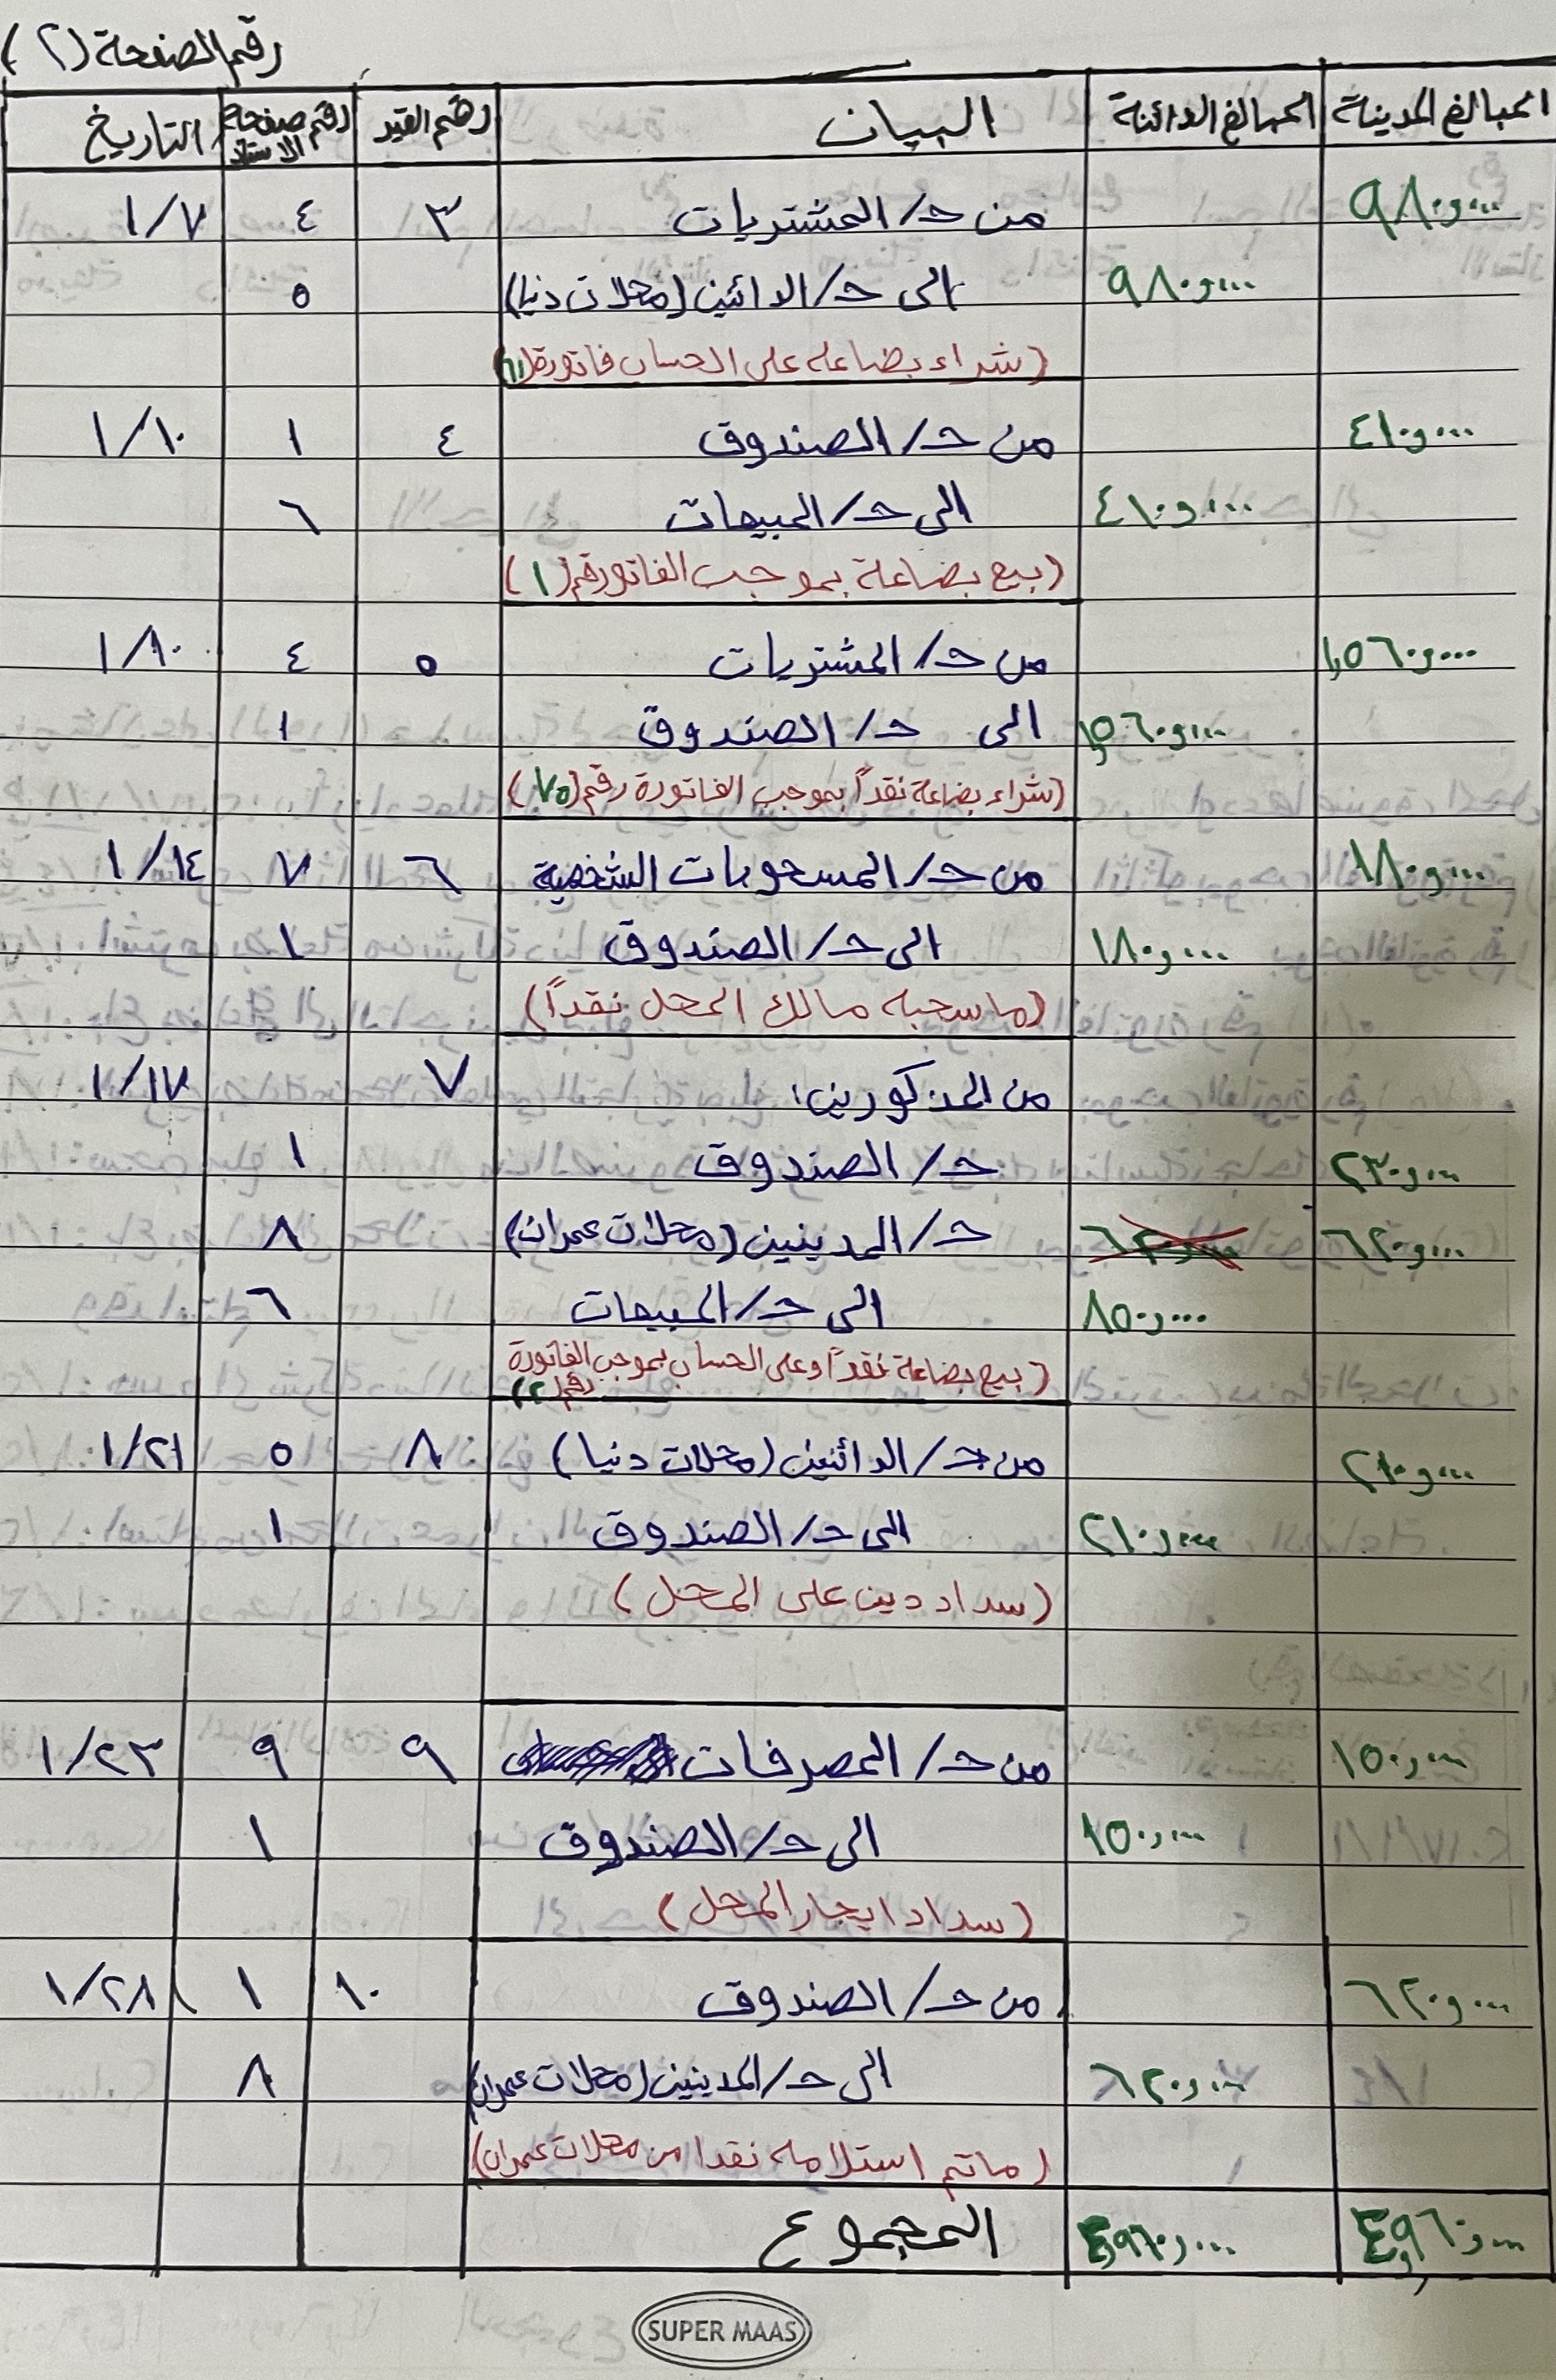 رقم الصفحة (٢)
المبالغ المدينة المبالغ الدائنة البيان رقم القيد رقم صفحة الاستاذ التاريخ
٩٨٠و٠٠٠ من حـ/ المشتريات ٣ ٤ ١/٧
٩٨٠و٠٠٠ الى حـ/ الدائنين (محلات دنيا) ٥
(شراء بضاعه على الحساب فاتورة (٦١))
٤١٠و٠٠٠ من حـ/ الصندوق ٤ ١ ١/١٠
٤١٠و٠٠٠ الى حـ/ المبيعات ٦
(بيع بضاعة بموجب الفاتورة رقم (١))
١,٥٦٠و٠٠٠ من حـ/ المشتريات ٥ ٤ ١/١٠
١,٥٦٠و٠٠٠ الى حـ/ الصندوق ١
(شراء بضاعة نقداً بموجب الفاتورة رقم (٧٥))
١٨٠و٠٠٠ من حـ/ المسحوبات الشخصية ٦ ٧ ١/١٤
١٨٠و٠٠٠ الى حـ/ الصندوق ١
(ما سحبه مالك المحل نقداً)
من المذكورين: ٧ ١/١٧
٢٣٠و٠٠٠ حـ/ الصندوق ١
٦٢٠و٠٠٠ حـ/ المدينين (محلات عمران) ٨
٨٥٠و٠٠٠ الى حـ/ المبيعات ٦
(بيع بضاعة نقداً وعلى الحساب بموجب الفاتورة
رقم (٢))
٢١٠و٠٠٠ من حـ/ الدائنين (محلات دنيا) ٨ ٥ ١/٢١
٢١٠و٠٠٠ الى حـ/ الصندوق ١
(سداد دين على المحل)
١٥٠و٠٠٠ من حـ/ المصرفات ٩ ٩ ١/٢٣
١٥٠و٠٠٠ الى حـ/ الصندوق ١
(سداد ايجار المحل)
٦٢٠و٠٠٠ من حـ/ الصندوق ١٠ ١ ١/٢٨
٦٢٠و٠٠٠ الى حـ/ المدينين (محلات عمران) ٨
(ماتم استلامه نقدا من محلات عمران)
٤,٩٦٠و٠٠٠ ٤,٩٦٠و٠٠٠ المجموع
SUPER MAAS